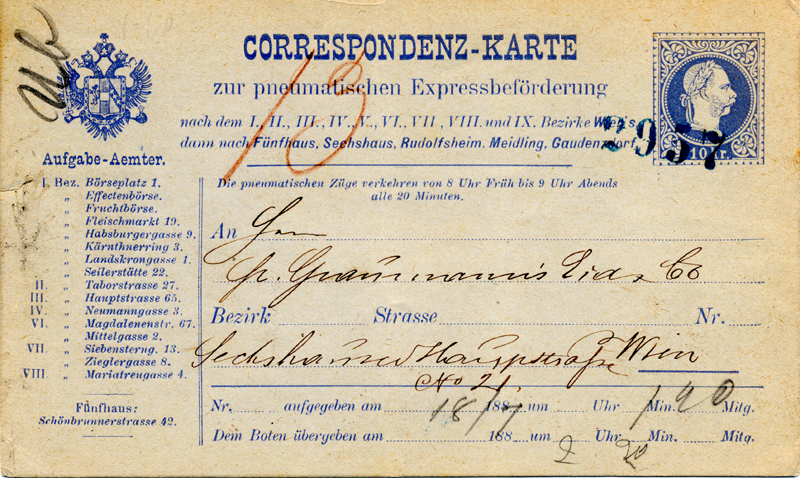 CORRESPONDENZ-KARTE
zur pneumatischen Expressbeförderung
nach dem I., II., III., IV., V., VI., VII., VIII. und IX. Bezirke Wien's
dann nach Fünfhaus, Sechshaus, Rudolfsheim, Meidling, Gaudenzdorf.
13
2957
10 Kr.
Aufgabe-Aemter.
I. Bez. Börseplatz 1.
„ Effectenbörse.
„ Fruchtbörse.
„ Fleischmarkt 19.
„ Habsburgergasse 9.
„ Kärnthnerring 3.
„ Landskrongasse 1.
„ Seilerstätte 22.
II. „ Taborstrasse 27.
III. „ Hauptstrasse 65.
IV. „ Neumanngasse 3.
VI. „ Magdalenenstr. 67.
„ Mittelgasse 2.
VII. „ Siebensterng. 13.
„ Zieglergasse 8.
VIII. „ Mariatreugasse 4.
Fünfhaus:
Schönbrunnerstrasse 42.
Die pneumatischen Züge verkehren von 8 Uhr Früh bis 9 Uhr Abends
alle 20 Minuten.
An Herrn
& Co
Bezirk Strasse Nr.
Sechshauser Hauptstraße Wien
No 21.
Nr. aufgegeben am 18/7 188 um Uhr Min. Mitg.
Dem Boten übergeben am 188 um Uhr Min. Mitg.
2 20